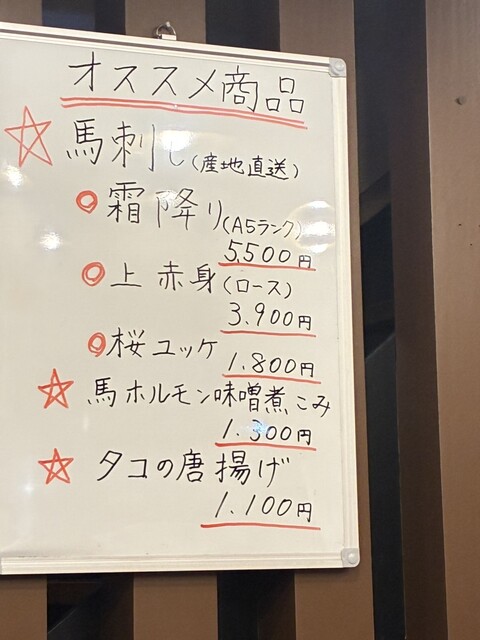 オススメ商品
☆馬刺し(産地直送)
霜降り(A5ランク)
5,500円
上赤身(ロース)
3.900円
桜ユッケ 1.800円
☆馬ホルモン味噌煮こみ
1.300円
☆タコの唐揚げ
1.100円